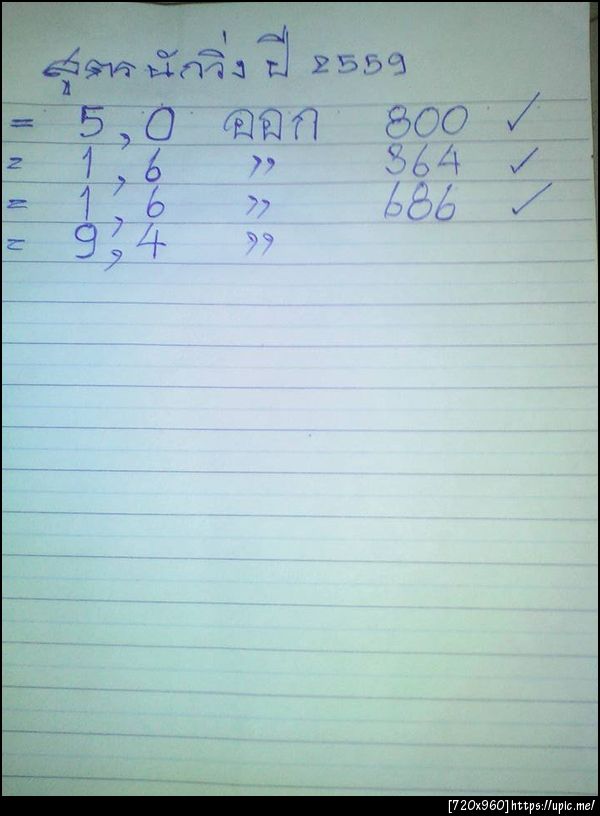 สูตร นักวิ่ง ปี 2559
= 5,0 ออก 800 ✓
= 1,6 " 364 ✓
= 1,6 " 686 ✓
= 9,4 "
[720x960]https://upic.me/